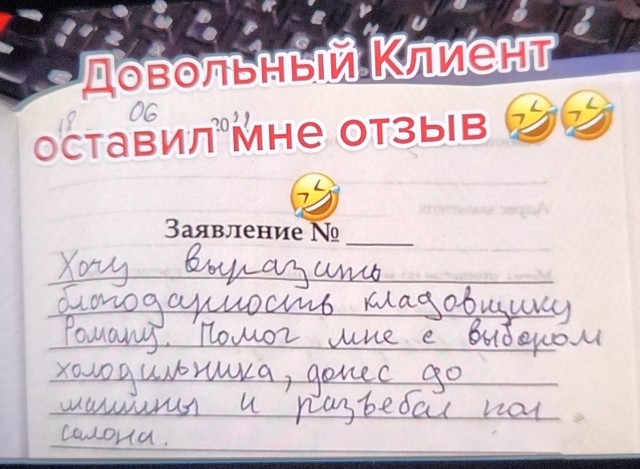 Довольный Клиент
18 06 2022
оставил мне отзыв 🤣🤣
🤣
Заявление № ______
Хочу выразить
благодарность кладовщику
Роману. Помог мне с выбором
холодильника, донес до
машины и разъебал пол
салона.